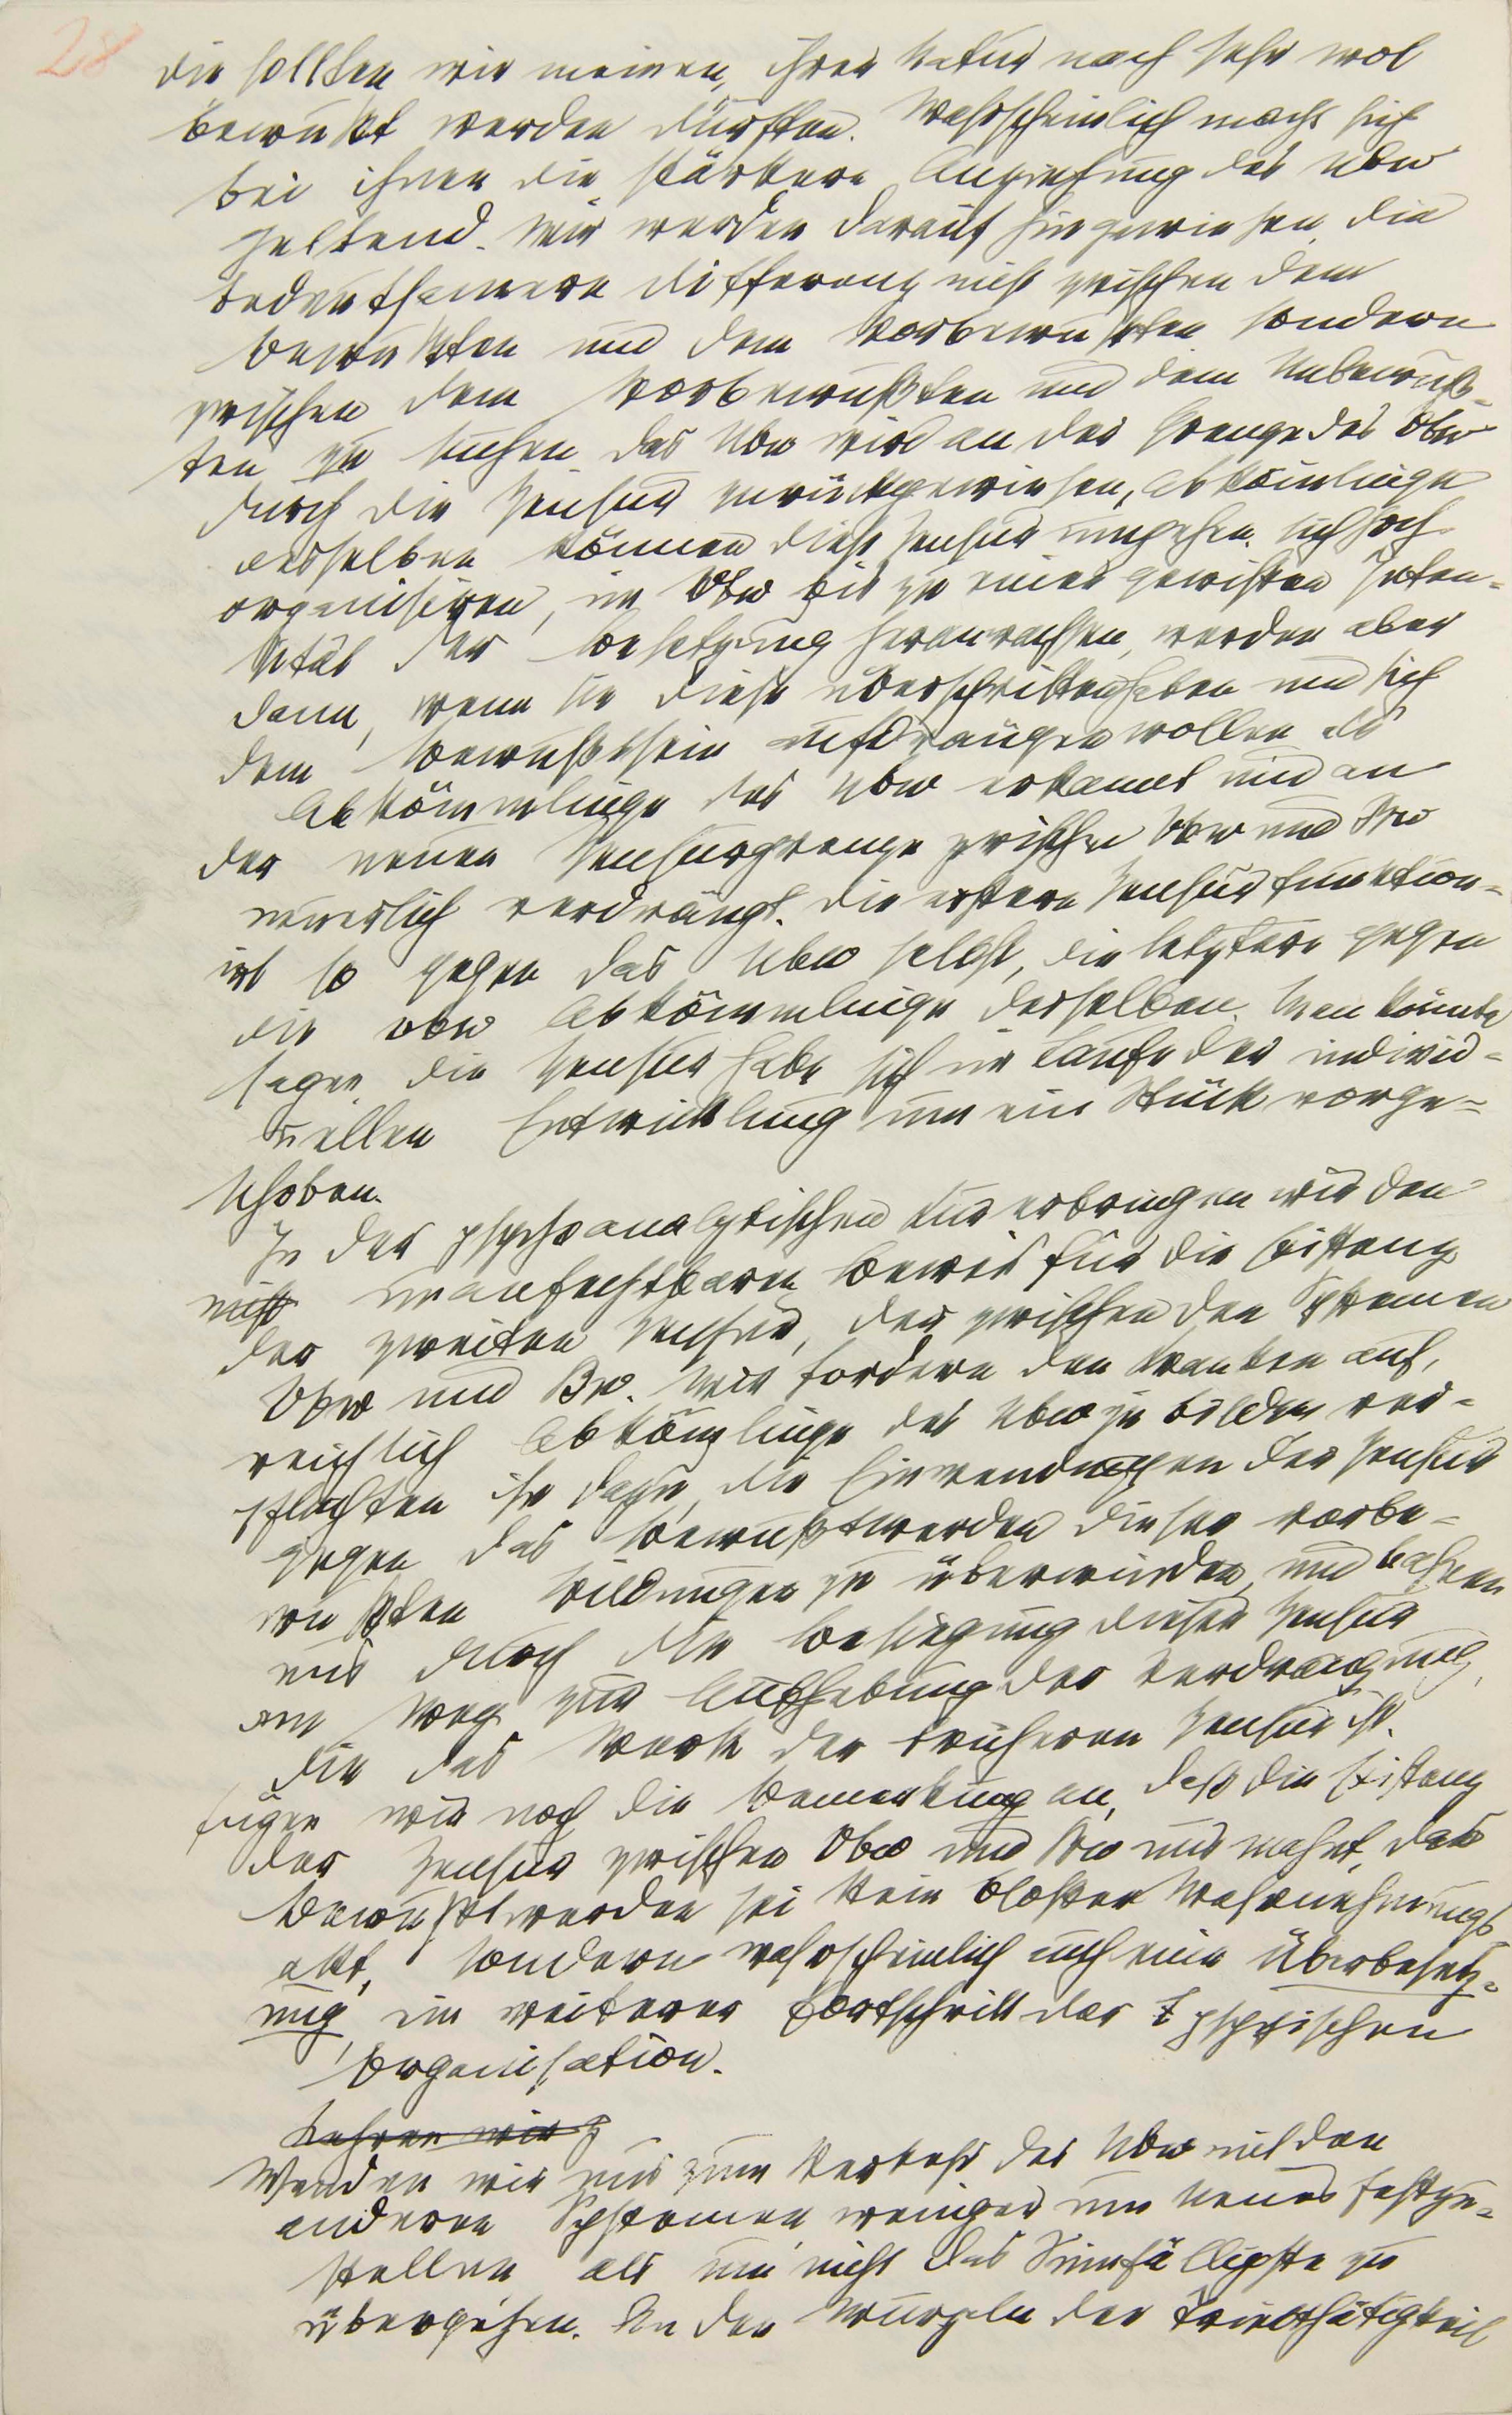 28
die sollten wir meinen, ihrer Natur nach sehr wol
bewußt werden dürften. Wahrscheinlich macht sich
bei ihnen die stärkere Anziehung des Ubw
geltend. Wir werden darauf hingewiesen, die
bedeutsamere Differenz nicht zwischen dem
Bewußten und dem Vorbewußten sondern
zwischen dem Vorbewußten und dem Unbewuß-
ten zu suchen. Das Ubw wird an der Grenze des Vbw
durch die Zensur zurückgewiesen, Abkömlinge
desselben können diese Zensur umgehen, sich hoch
organisiren, im Vbw bis zu einer gewissen Inten-
sität der Besetzung heranwachsen, werden aber
dann, wenn sie diese überschritten haben und sich
dem Bewußtsein aufdrängen wollen als
Abkömmlinge des Ubw erkannt und an
der neuen Zensurgrenze zwischen Vbw und Bw
neuerlich verdrängt. Die erstere Zensur funktion-
irt so gegen das Ubw selbst, die letztere gegen
die vbw Abkömmlinge desselben. Man könnte
sagen, die Zensur habe sich im Laufe der individ-
uellen Entwicklung um ein Stück vorge-
schoben.
In der psychoanalytischen Kur erbringen wir den
nicht unanfechtbaren Beweis für die Existenz
der zweiten Zensur, der zwischen den Systemen
Vbw und Bw. Wir fordern den Kranken auf,
reichlich Abkömlinge des Ubw zu bilden ver-
pflichten ihn dazu, die Einwendungen der Zensur
gegen das Bewußtwerden dieser vorbe-
wußten Bildungen zu überwinden, und bahnen
uns durch die Besiegung dieser Zensur
den Weg zur Aufhebung der Verdrängung,
die das Werk der früheren Zensur ist.
Fügen wir noch die Bemerkung an, daß die Existenz
der Zensur zwischen Vbw und Bw uns mahnt, das
Bewußtwerden sei kein bloßer Wahrnehmungs-
akt, sondern wahrscheinlich auch eine Überbesetz-
ung, ein weiterer Fortschritt der psychischen
Organisation.
Kehren wir z
Wenden wir uns zum Verkehr des Ubw mit den
anderen Systemen, weniger um Neues festzu-
stellen als um nicht das Sinnfälligste zu
übergehen. An den Wurzeln der Triebthätigkeit